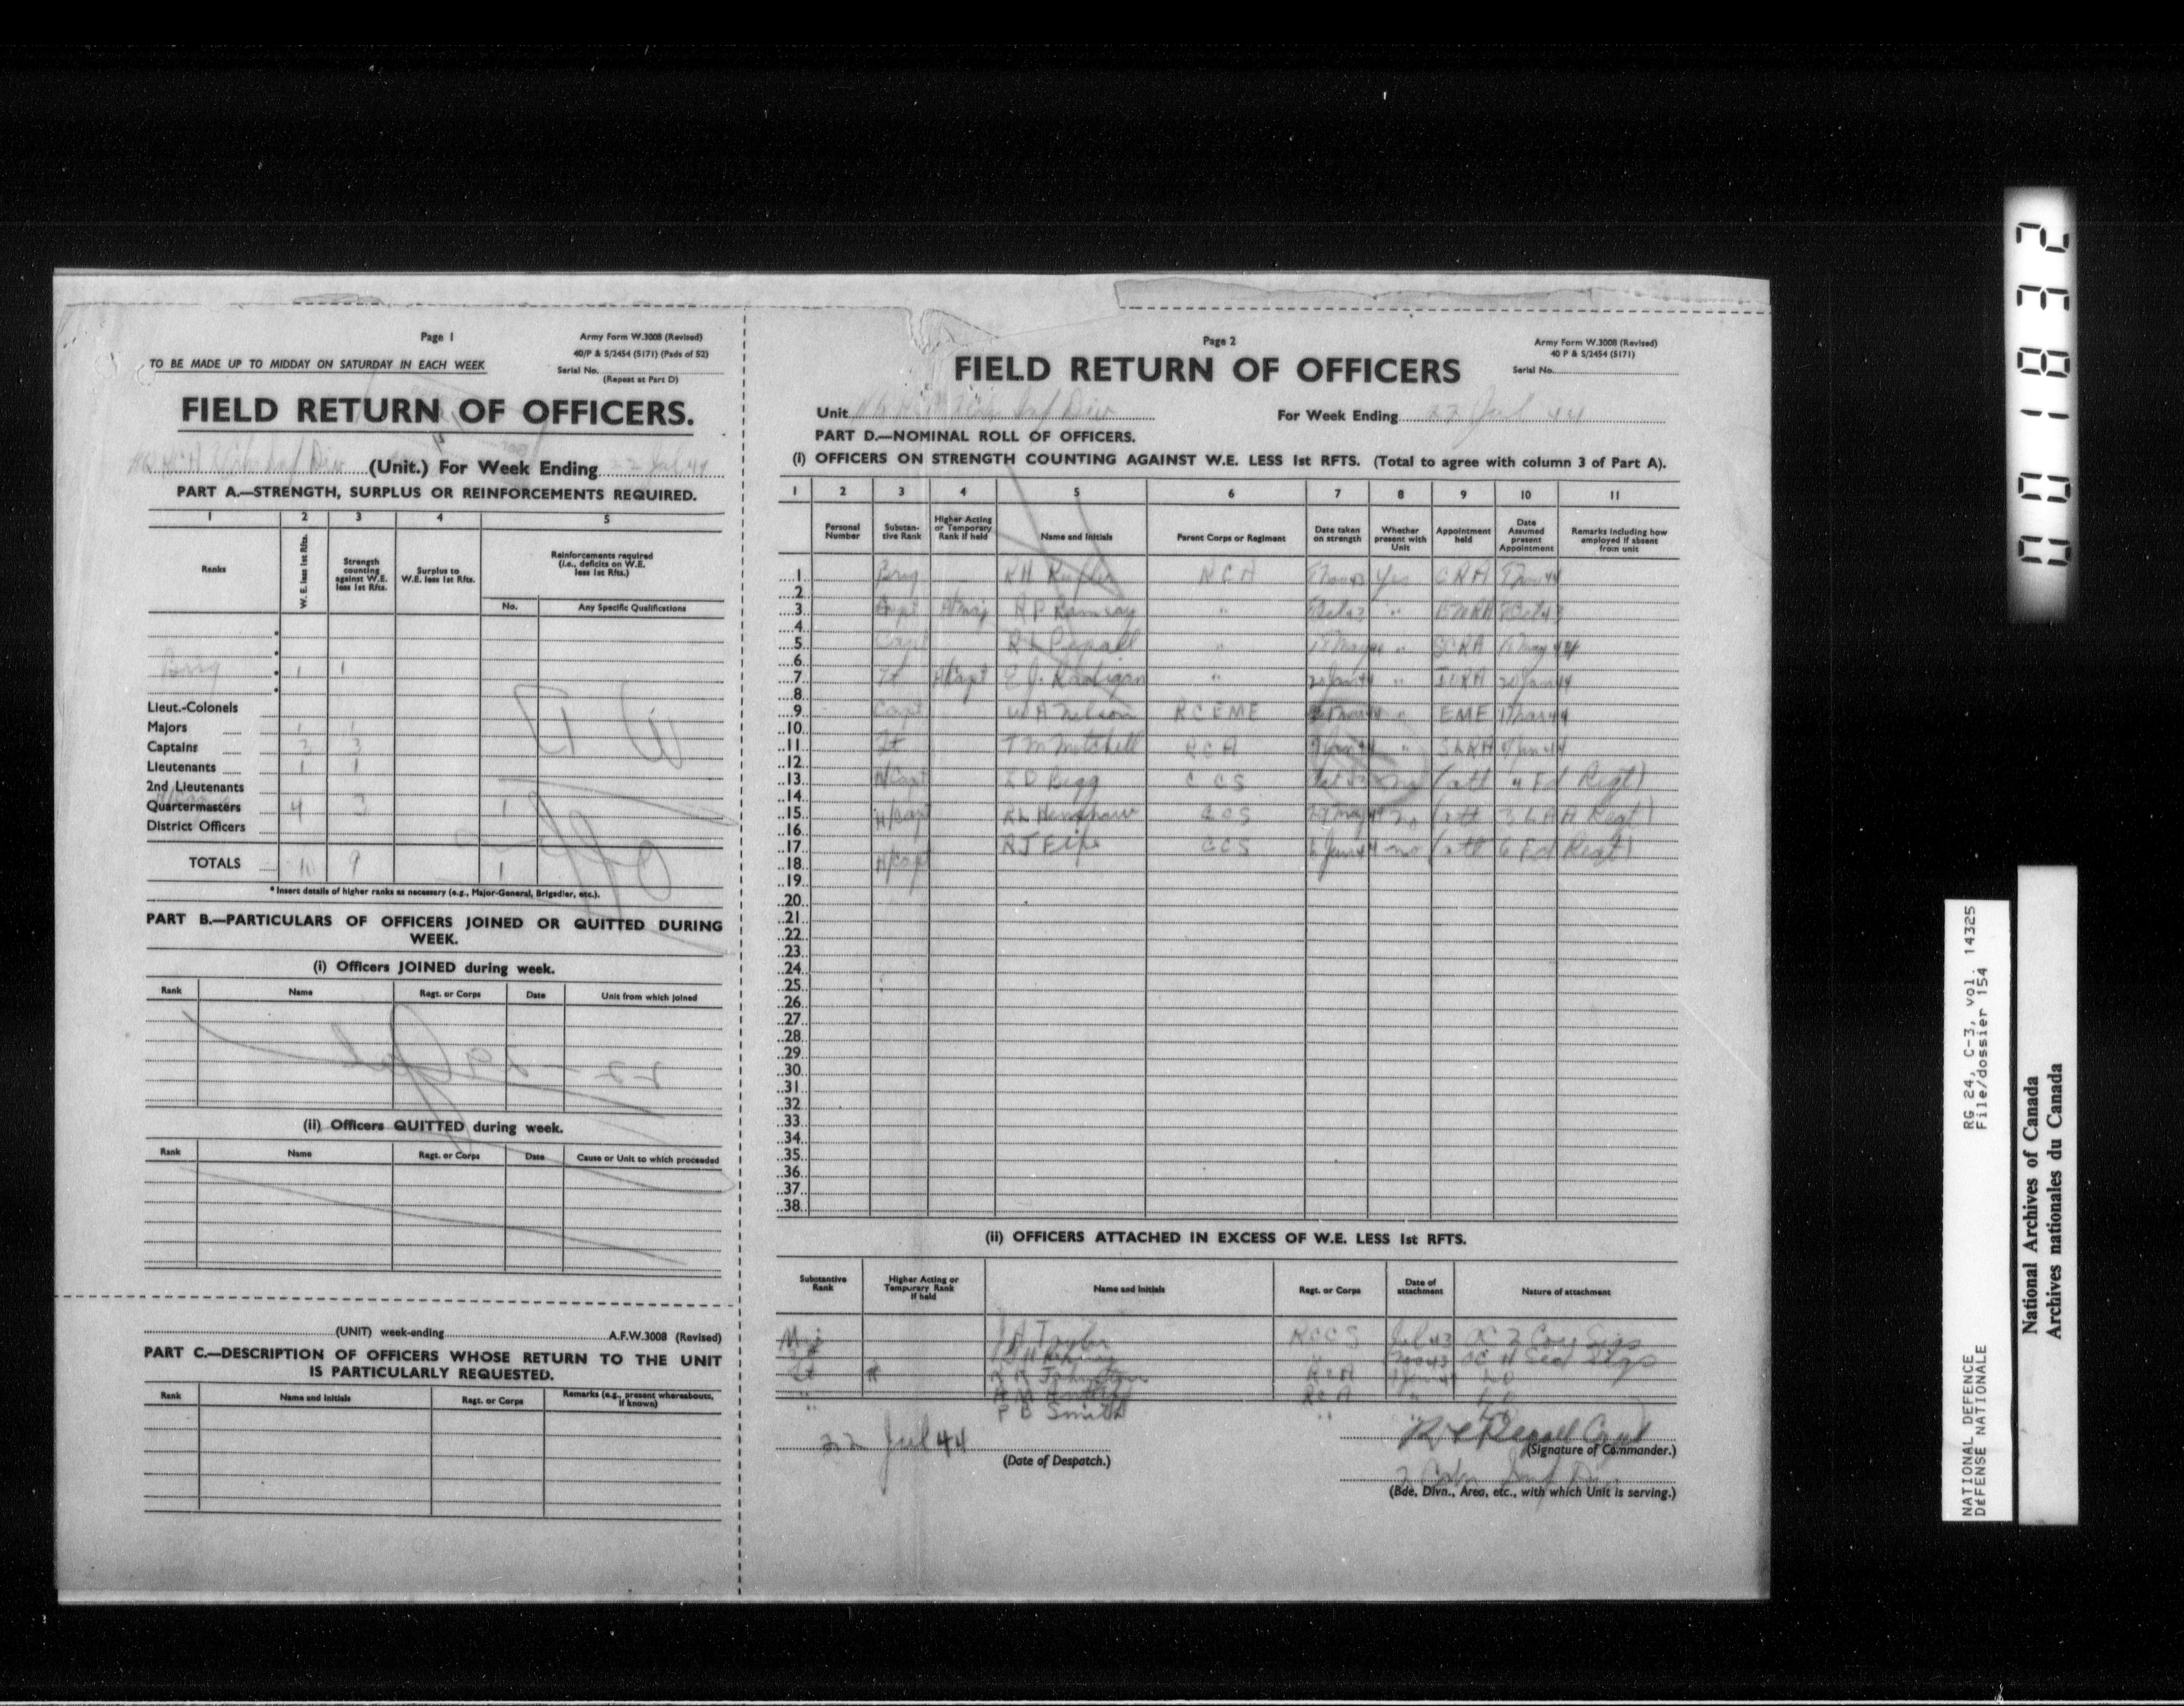 Page 1
Army Form W.3008 (Revised)
40/P & S/2454 (5171) (Pads of 52)
TO BE MADE UP TO MIDDAY ON SATURDAY IN EACH WEEK
Serial No.
(Repeat at Part D)
FIELD RETURN OF OFFICERS.
HQ RCA Div (Unit.) For Week Ending 22 Jul 44
PART A.—STRENGTH, SURPLUS OR REINFORCEMENTS REQUIRED.
1 2 3 4 5
Ranks
W. E. less 1st Rfts.
Strength counting against W.E. less 1st Rfts.
Surplus to W.E. less 1st Rfts.
Reinforcements required (i.e., deficits on W.E. less 1st Rfts.)
No. Any Specific Qualifications
Brig 1 1
Lieut.-Colonels
Majors 1 1
Captains 3 3
Lieutenants 1 1
2nd Lieutenants
Quartermasters 4 3 1
District Officers
TOTALS 10 9 1
* Insert details of higher ranks as necessary (e.g., Major-General, Brigadier, etc.).
PART B.—PARTICULARS OF OFFICERS JOINED OR QUITTED DURING WEEK.
(i) Officers JOINED during week.
Rank Name Regt. or Corps Date Unit from which joined
(ii) Officers QUITTED during week.
Rank Name Regt. or Corps Date Cause or Unit to which proceeded
(UNIT) week-ending A.F.W.3008 (Revised)
PART C.—DESCRIPTION OF OFFICERS WHOSE RETURN TO THE UNIT IS PARTICULARLY REQUESTED.
Rank Name and Initials Regt. or Corps Remarks (e.g., present whereabouts, if known)
Page 2
Army Form W.3008 (Revised)
40 P & S/2454 (5171)
Serial No.
FIELD RETURN OF OFFICERS
Unit HQ Inf Div For Week Ending 22 Jul 44
PART D.—NOMINAL ROLL OF OFFICERS.
(i) OFFICERS ON STRENGTH COUNTING AGAINST W.E. LESS 1st RFTS. (Total to agree with column 3 of Part A).
1 2 3 4 5 6 7 8 9 10 11
Personal Number
Substantive Rank
Higher Acting or Temporary Rank if held
Name and Initials
Parent Corps or Regiment
Date taken on strength
Whether present with Unit
Appointment held
Date Assumed present Appointment
Remarks including how employed if absent from unit
1 Brig RH RCA Yes CRA
2
3 Capt A/Maj A P Ramsay " " BMRA
4
5 Capt R L Pepall " " SCRA
6
7 Lt A/Capt E J. " 20 Jan 44 " IORA 20 Jan 44
8
9 Capt W A Nelson RCEME " EME
10
11 Lt T M Mitchell RCA "
12
13 H/Capt CCS no (att 4 Fd Regt)
14
15 H/Capt R L Henshaw CCS 29 May 44 no (att 3 LAA Regt)
16
17 R J CCS no (att 6 Fd Regt)
18 H/Capt
19
20
21
22
23
24
25
26
27
28
29
30
31
32
33
34
35
36
37
38
(ii) OFFICERS ATTACHED IN EXCESS OF W.E. LESS 1st RFTS.
Substantive Rank
Higher Acting or Temporary Rank if held
Name and Initials
Regt. or Corps
Date of attachment
Nature of attachment
Maj J A Taylor RCCS OC 2 Coy Sigs
OC Sigs
Lt Johnston RCA
" RCA "
P B Smith "
22 Jul 44
(Date of Despatch.)
R L Pepall Capt
(Signature of Commander.)
2 Cdn Inf Div
(Bde, Divn., Area, etc., with which Unit is serving.)
001832
RG 24, C-3, vol. 14325
File/dossier 154
NATIONAL DEFENCE
DÉFENSE NATIONALE
National Archives of Canada
Archives nationales du Canada